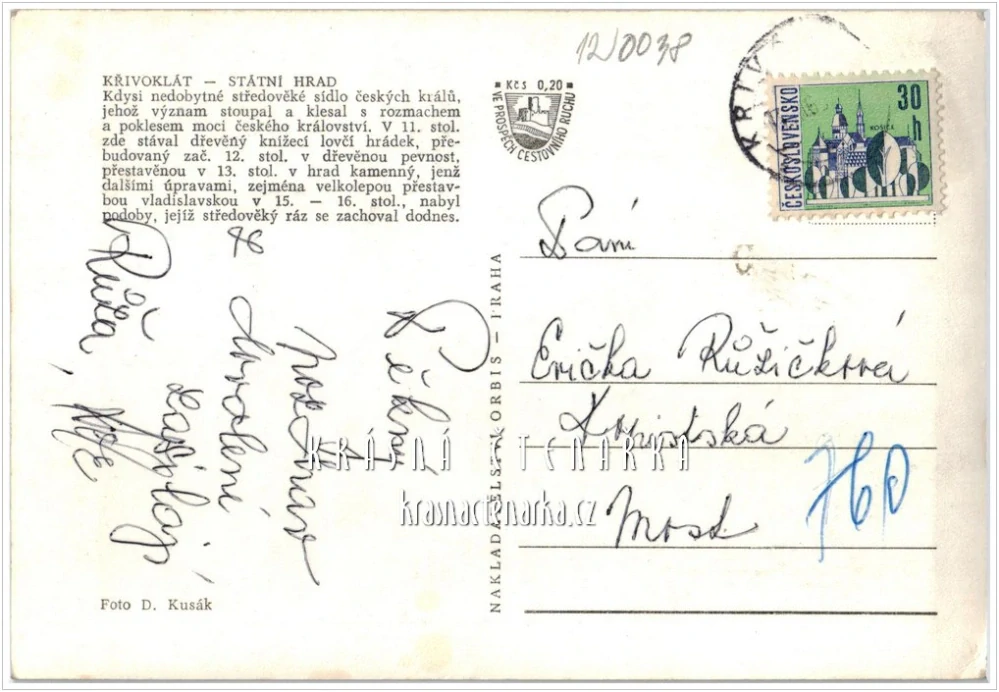 12/0038
KŘIVOKLÁT — STÁTNÍ HRAD
Kdysi nedobytné středověké sídlo českých králů,
jehož význam stoupal a klesal s rozmachem
a poklesem moci českého království. V 11. stol.
zde stával dřevěný knížecí lovčí hrádek, pře-
budovaný zač. 12. stol. v dřevěnou pevnost,
přestavěnou v 13. stol. v hrad kamenný, jenž
dalšími úpravami, zejména velkolepou přestav-
bou vladislavskou v 15. — 16. stol., nabyl
podoby, jejíž středověký ráz se zachoval dodnes.
Kčs 0,20
VE PROSPĚCH CESTOVNÍHO RUCHU
ČESKOSLOVENSKO
30
h
Pěkný
pozdrav
z
dovolené
zasílají
Růža,
Foto D. Kusák
NAKLADATELSTVÍ ORBIS — PRAHA
Paní
Erička Růžičková
Most
760
KRÁSNÁ ČTENÁŘKA
krasnactenarka.cz